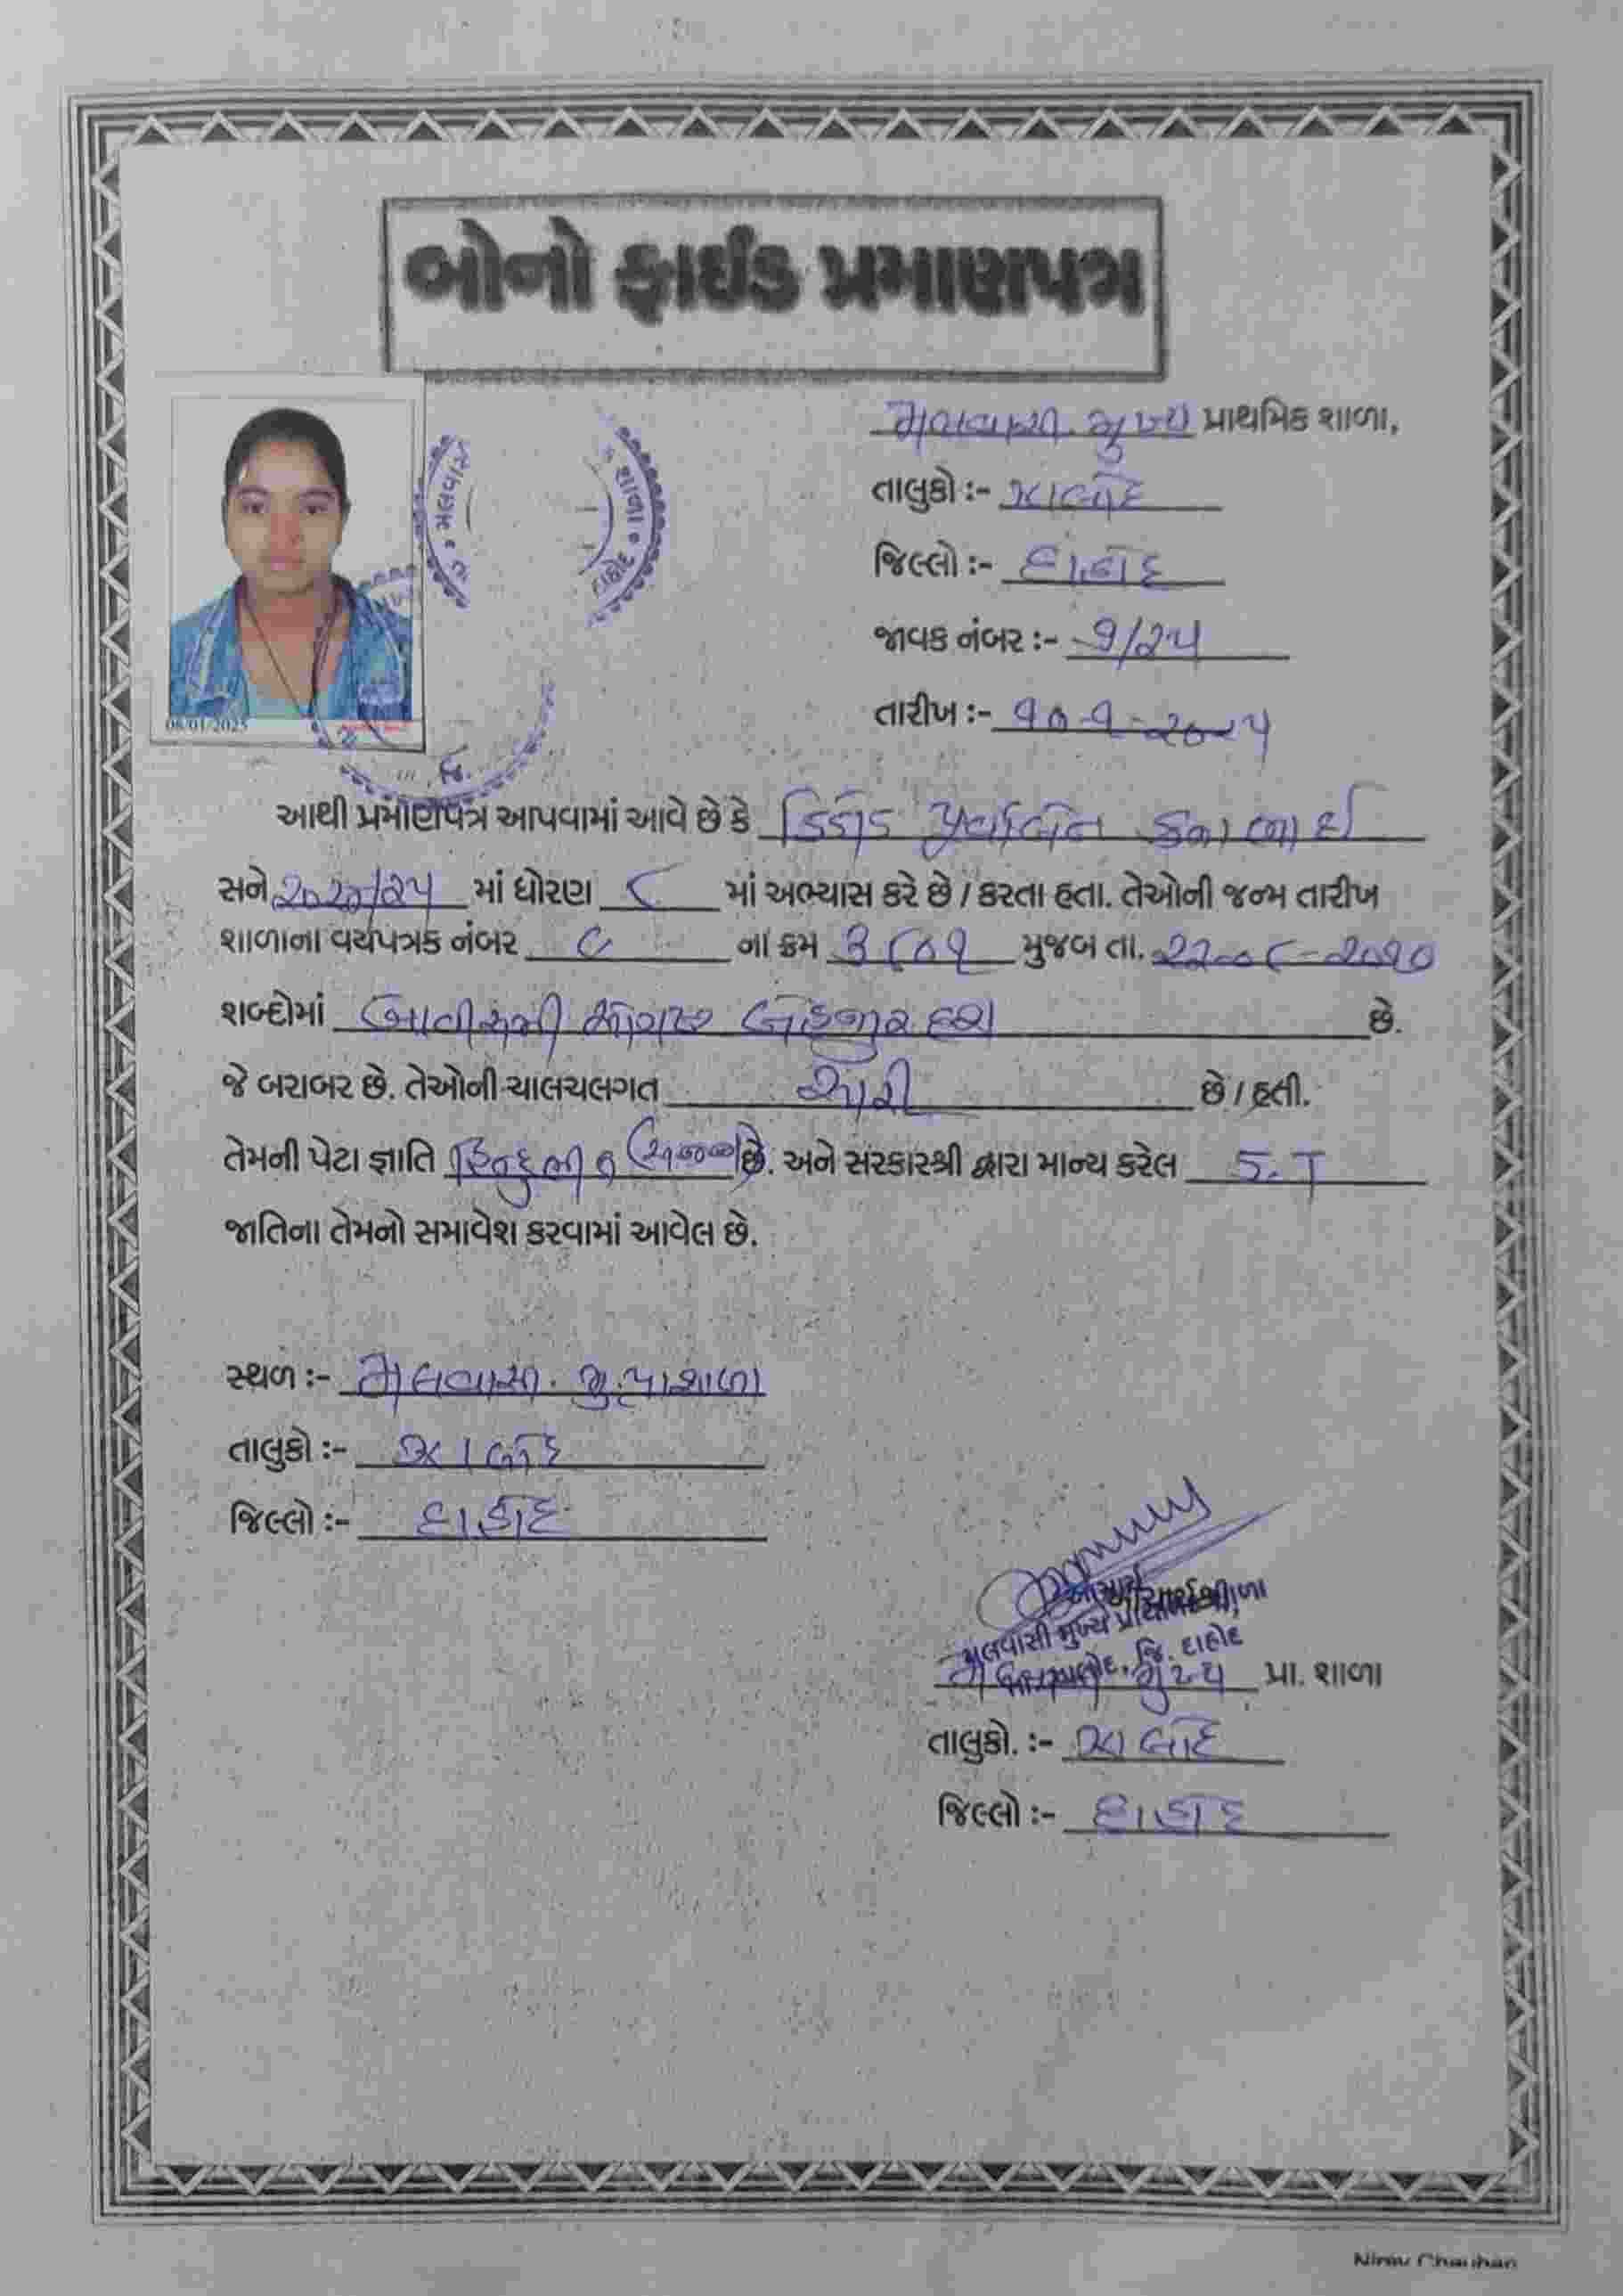 બોનો ફાઈડ પ્રમાણપત્ર
મલવાસી મુખ્ય પ્રાથમિક શાળા,
તાલુકો :- ઝાલોદ
જિલ્લો :- દાહોદ
જાવક નંબર :- ૧/૨૫
તારીખ :- ૧૦-૧-૨૦૨૫
મલવાસી
શાળા • દાહોદ
જિ.
06/01/2025
આથી પ્રમાણપત્ર આપવામાં આવે છે કે ડિંડોડ કનાભાઈ
સને ૨૦૨૪/૨૫ માં ધોરણ ૮ માં અભ્યાસ કરે છે / કરતા હતા. તેઓની જન્મ તારીખ
શાળાના વયપત્રક નંબર ૯ ના ક્રમ ૩૮૦૧ મુજબ તા. ૨૨-૦૮-૨૦૧૦
શબ્દોમાં બાવીસમી ઓગષ્ટ બેહજાર દશ છે.
જે બરાબર છે. તેઓની ચાલચલગત સારી છે / હતી.
તેમની પેટા જ્ઞાતિ હિન્દુ ભીલ છે. અને સરકારશ્રી દ્વારા માન્ય કરેલ S.T
જાતિના તેમનો સમાવેશ કરવામાં આવેલ છે.
સ્થળ :- મલવાસી મુ.પ્રા.શાળા
તાલુકો :- ઝાલોદ
જિલ્લો :- દાહોદ
આચાર્યશ્રી
મલવાસી મુખ્ય પ્રાથમિક શાળા
જિ. દાહોદ
મુખ્ય પ્રા. શાળા
તાલુકો. :- ઝાલોદ
જિલ્લો :- દાહોદ
Nirav Chauhan